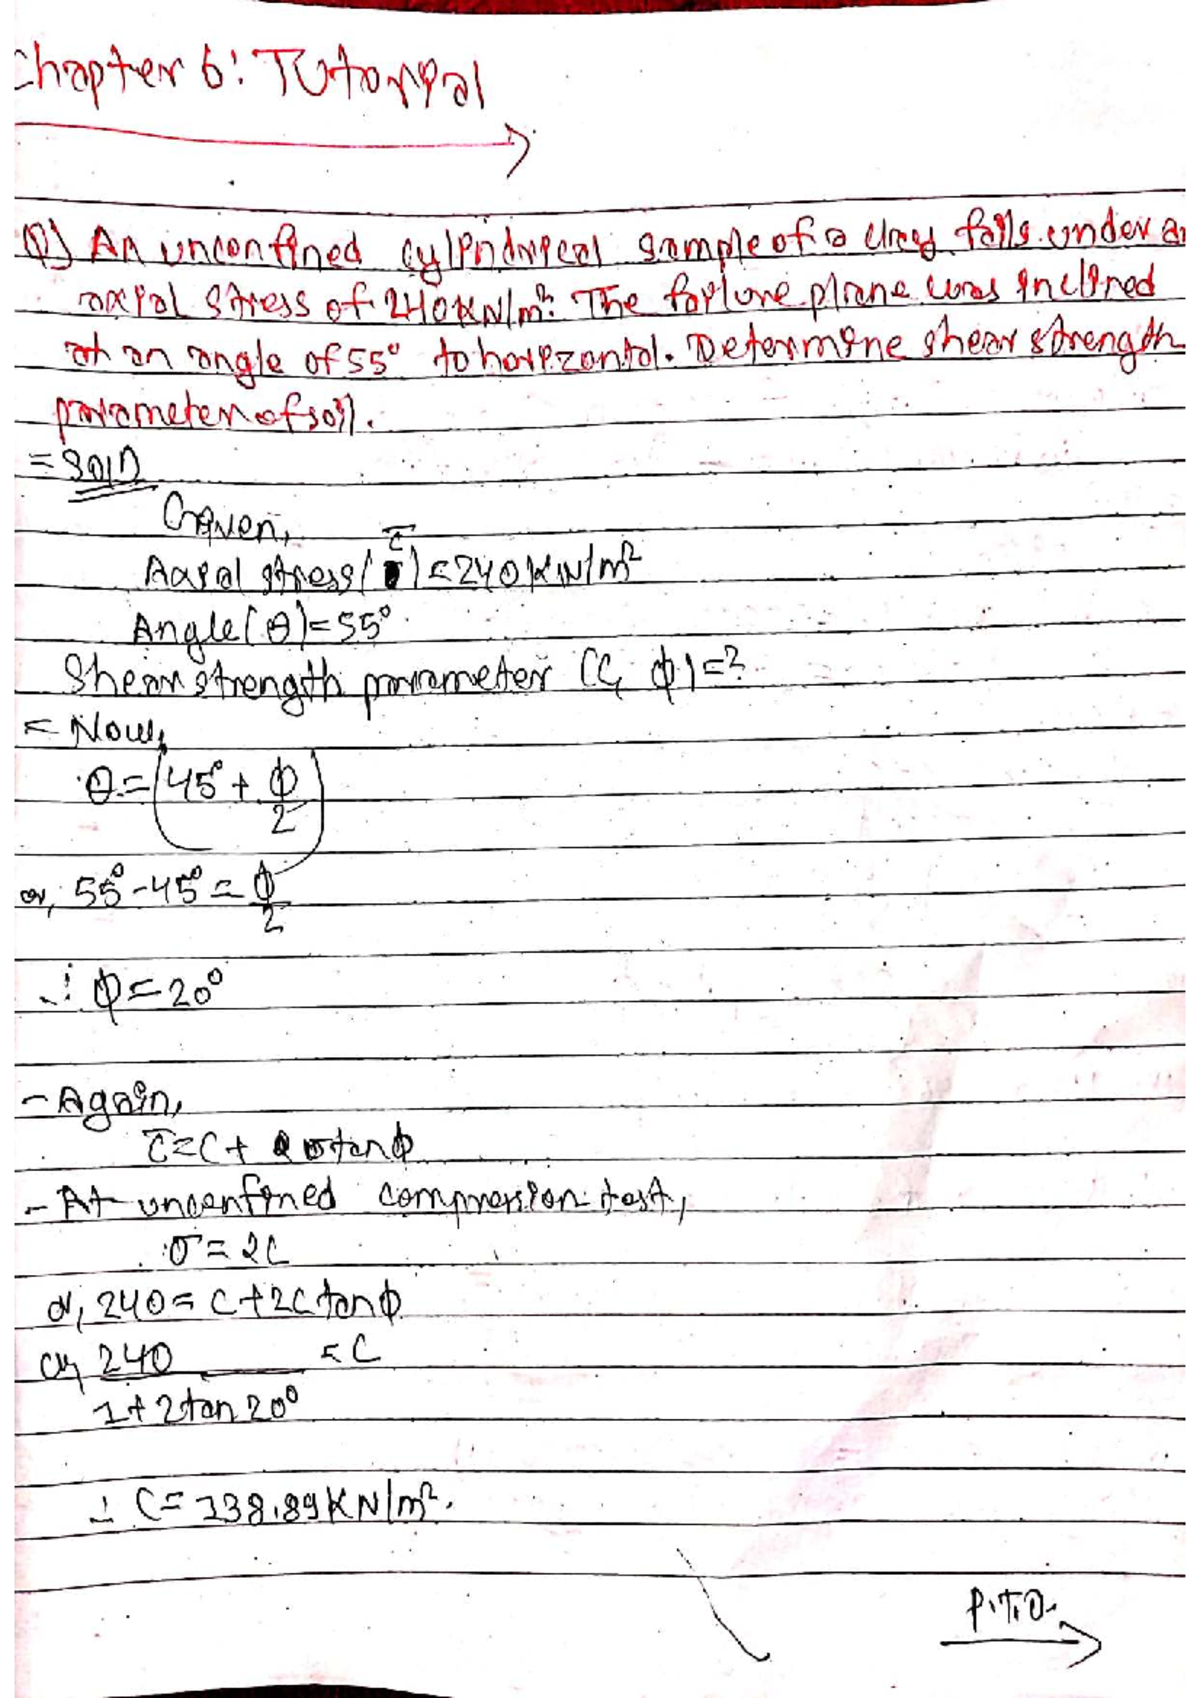 Chapter 6: Tutorial
Q) An unconfined cylindrical sample of a clay fails under an
axial stress of 240KN/m². The failure plane was inclined
at an angle of 55° to horizontal. Determine shear strength
parameter of soil.
= Solⁿ
Given,
Axial stress (τ) = 240KN/m²
Angle (θ) = 55°
Shear strength parameter (C, φ) = ?
= Now,
θ = (45° + φ/2)
or, 55° - 45° = φ/2
∴ φ = 20°
- Again,
τ = C + σ tanφ
- At unconfined compression test,
σ = 2C
or, 240 = C + 2C tanφ
or, 240/(1 + 2tan20°) = C
∴ C = 138.89KN/m².
P.T.O.